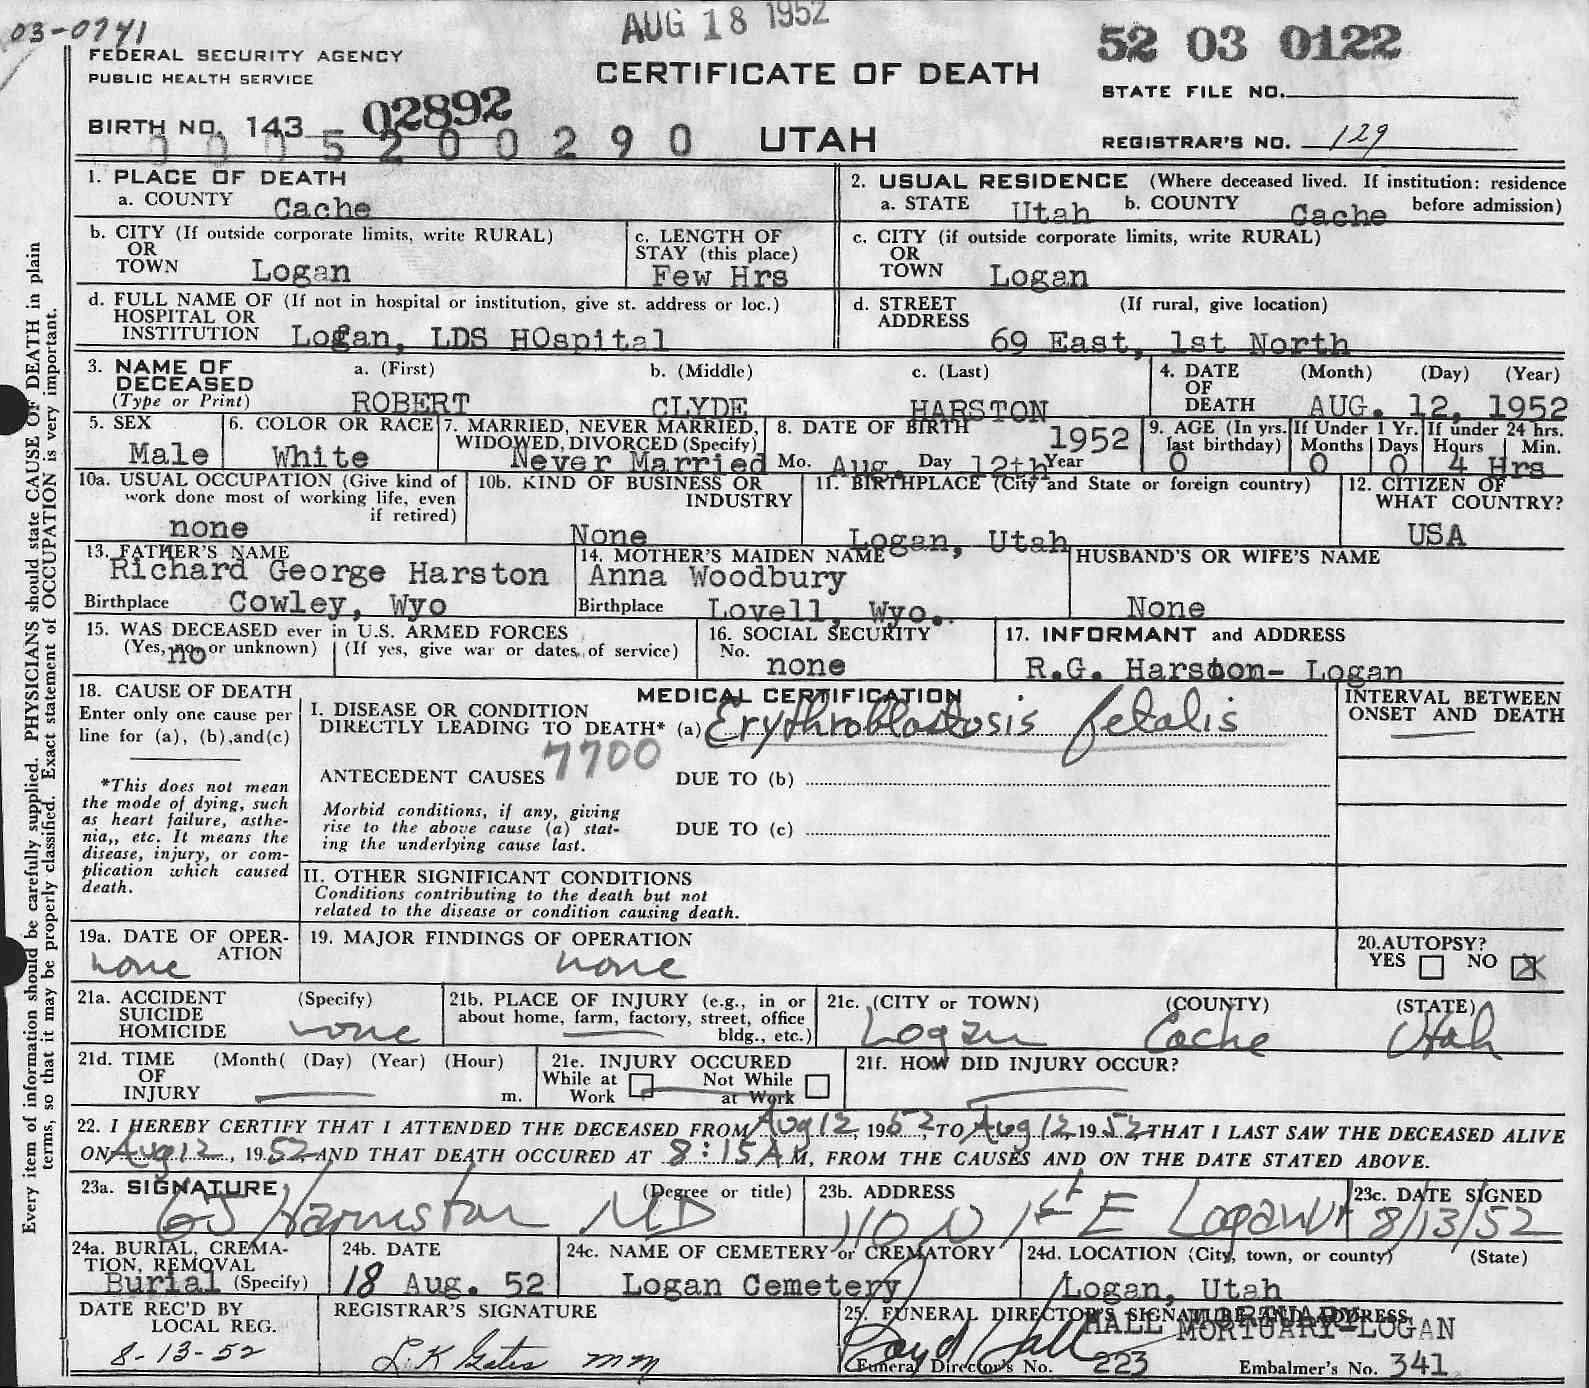 03-0741
AUG 18 1952
52 03 0122
FEDERAL SECURITY AGENCY
PUBLIC HEALTH SERVICE
CERTIFICATE OF DEATH
STATE FILE NO.
BIRTH NO. 143 02892
0 0 0 5 2 0 0 2 9 0
UTAH
REGISTRAR'S NO. 129
1. PLACE OF DEATH
a. COUNTY Cache
2. USUAL RESIDENCE (Where deceased lived. If institution: residence before admission)
a. STATE Utah b. COUNTY Cache
b. CITY (If outside corporate limits, write RURAL)
OR
TOWN Logan
c. LENGTH OF
STAY (this place)
Few Hrs
c. CITY (if outside corporate limits, write RURAL)
OR
TOWN Logan
d. FULL NAME OF (If not in hospital or institution, give st. address or loc.)
HOSPITAL OR
INSTITUTION Logan, LDS HOspital
d. STREET (If rural, give location)
ADDRESS
69 East, 1st North
3. NAME OF DECEASED
(Type or Print)
a. (First) b. (Middle) c. (Last)
ROBERT CLYDE HARSTON
4. DATE OF DEATH (Month) (Day) (Year)
AUG. 12, 1952
5. SEX
Male
6. COLOR OR RACE
White
7. MARRIED, NEVER MARRIED,
WIDOWED, DIVORCED (Specify)
Never Married
8. DATE OF BIRTH 1952
Mo. Aug. Day 12th Year
9. AGE (In yrs. last birthday)
0
If Under 1 Yr.
Months Days
0 0
If under 24 hrs.
Hours Min.
4 Hrs
10a. USUAL OCCUPATION (Give kind of
work done most of working life, even
if retired)
none
10b. KIND OF BUSINESS OR
INDUSTRY
None
11. BIRTHPLACE (City and State or foreign country)
Logan, Utah
12. CITIZEN OF
WHAT COUNTRY?
USA
13. FATHER'S NAME
Richard George Harston
Birthplace Cowley, Wyo
14. MOTHER'S MAIDEN NAME
Anna Woodbury
Birthplace Lovell, Wyo.
HUSBAND'S OR WIFE'S NAME
None
15. WAS DECEASED ever in U.S. ARMED FORCES
(Yes, no, or unknown) (If yes, give war or dates of service)
no
16. SOCIAL SECURITY
No. none
17. INFORMANT and ADDRESS
R.G. Harston- Logan
18. CAUSE OF DEATH
Enter only one cause per
line for (a), (b),and(c)
*This does not mean
the mode of dying, such
as heart failure, asthe-
nia,, etc. It means the
disease, injury, or com-
plication which caused
death.
MEDICAL CERTIFICATION
I. DISEASE OR CONDITION
DIRECTLY LEADING TO DEATH* (a) Erythroblastosis fetalis
7700
ANTECEDENT CAUSES DUE TO (b)
Morbid conditions, if any, giving
rise to the above cause (a) stat-
ing the underlying cause last.
DUE TO (c)
INTERVAL BETWEEN
ONSET AND DEATH
II. OTHER SIGNIFICANT CONDITIONS
Conditions contributing to the death but not
related to the disease or condition causing death.
19a. DATE OF OPER-
ATION
none
19. MAJOR FINDINGS OF OPERATION
none
20.AUTOPSY?
YES NO X
21a. ACCIDENT (Specify)
SUICIDE
HOMICIDE none
21b. PLACE OF INJURY (e.g., in or
about home, farm, factory, street, office
bldg., etc.)
21c. (CITY or TOWN) (COUNTY) (STATE)
Logan Cache Utah
21d. TIME (Month( (Day) (Year) (Hour)
OF
INJURY m.
21e. INJURY OCCURED
While at Work Not While at Work
21f. HOW DID INJURY OCCUR?
22. I HEREBY CERTIFY THAT I ATTENDED THE DECEASED FROM Aug 12, 1952, TO Aug 12 1952 THAT I LAST SAW THE DECEASED ALIVE
ON Aug 12, 1952 AND THAT DEATH OCCURED AT 8:15 A M, FROM THE CAUSES AND ON THE DATE STATED ABOVE.
23a. SIGNATURE (Degree or title)
Harmston MD
23b. ADDRESS
110 N 1st E Logan Ut
23c. DATE SIGNED
8/13/52
24a. BURIAL, CREMA-
TION, REMOVAL
Burial (Specify)
24b. DATE
18 Aug. 52
24c. NAME OF CEMETERY or CREMATORY
Logan Cemetery
24d. LOCATION (City, town, or county) (State)
Logan, Utah
DATE REC'D BY
LOCAL REG.
8-13-52
REGISTRAR'S SIGNATURE
L.K Gates mm
25. FUNERAL DIRECTOR'S SIGNATURE AND ADDRESS
HALL MORTUARY-LOGAN
Boyd Hall
Funeral Director's No. 223 Embalmer's No. 341
Every item of information should be carefully supplied. PHYSICIANS should state CAUSE OF DEATH in plain
terms, so that it may be properly classified. Exact statement of OCCUPATION is very important.